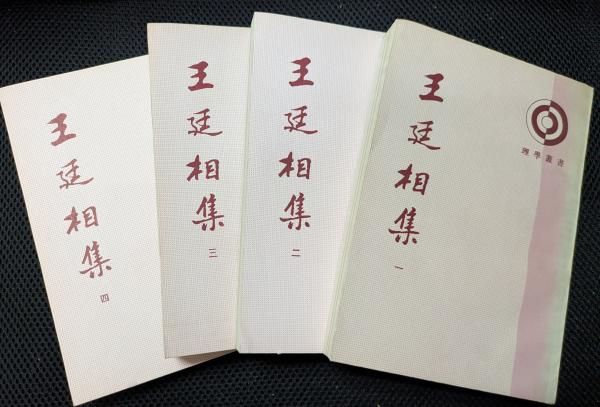 王廷相集
四
王廷相集
三
王廷相集
二
王廷相集
一
理學叢書